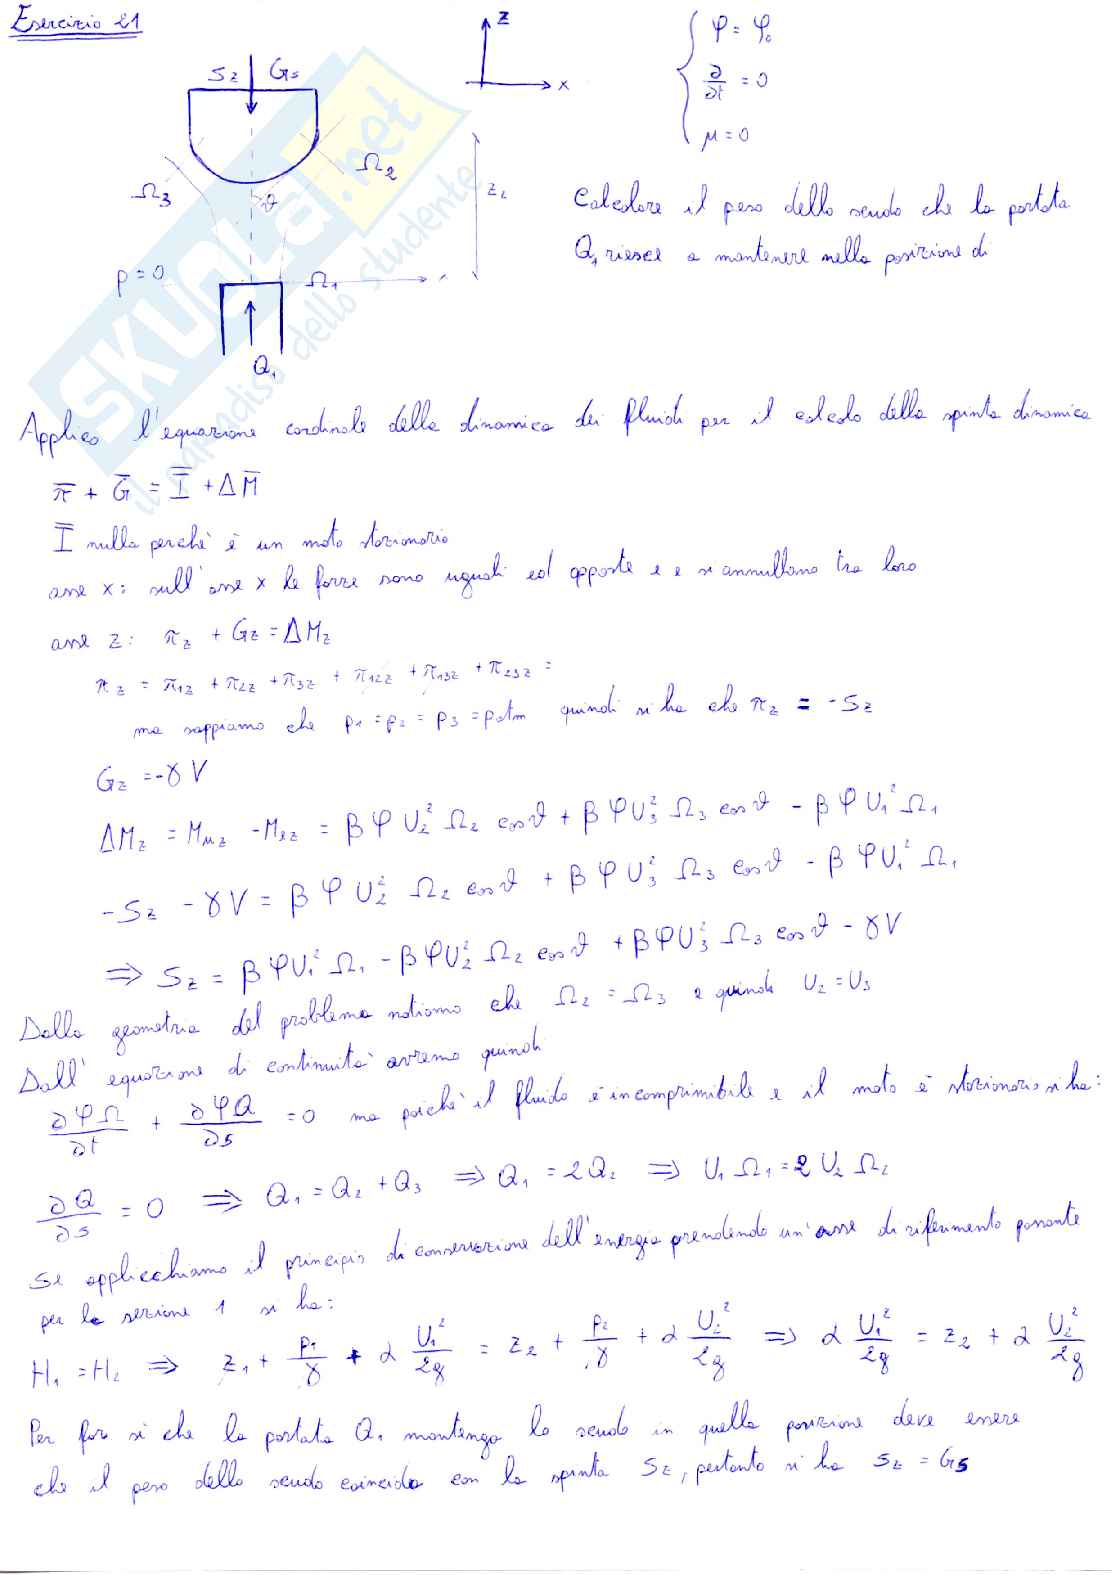 Esercizio 21
z
x
φ = φ₀
∂/∂t = 0
μ = 0
Sz Gs
Ω3
Ω2
ϑ
z2
p = 0
Ω1
Q1
Calcolare il peso dello scudo che la portata
Q1 riesce a mantenere nella posizione di
SKUOLA.net
il paradiso dello studente
Applico l'equazione cardinale della dinamica dei fluidi per il calcolo della spinta dinamica
π̄ + Ḡ = Ī + ΔM̄
Ī nulla perchè è un moto stazionario
asse x: sull'asse x le forze sono uguali ed opposte e e si annullano tra loro
asse z: πz + Gz = ΔMz
πz = π1z + π2z + π3z + π12z + π13z + π23z =
ma sappiamo che p1 = p2 = p3 = patm quindi si ha che πz = -Sz
Gz = -γV
ΔMz = Muz - Mez = βφU2²Ω2 cosϑ + βφU3²Ω3 cosϑ - βφU1²Ω1
-Sz - γV = βφU2²Ω2 cosϑ + βφU3²Ω3 cosϑ - βφU1²Ω1
⇒ Sz = βφU1²Ω1 - βφU2²Ω2 cosϑ + βφU3²Ω3 cosϑ - γV
Dalla geometria del problema notiamo che Ω2 = Ω3 e quindi U2 = U3
Dall'equazione di continuità avremo quindi
∂φΩ/∂t + ∂φQ/∂s = 0 ma poichè il fluido è incomprimibile e il moto è stazionario si ha:
∂Q/∂s = 0 ⇒ Q1 = Q2 + Q3 ⇒ Q1 = 2Q2 ⇒ U1Ω1 = 2U2Ω2
Se applicchiamo il principio di conservazione dell'energia prendendo un'asse di riferimento passante
per la sezione 1 si ha:
H1 = H2 ⇒ z1 + p1/γ + α U1²/2g = z2 + p2/γ + α U2²/2g ⇒ α U1²/2g = z2 + α U2²/2g
Per far si che la portata Q1 mantenga lo scudo in quella posizione deve essere
che il peso dello scudo coincida con la spinta Sz, pertanto si ha Sz = Gs